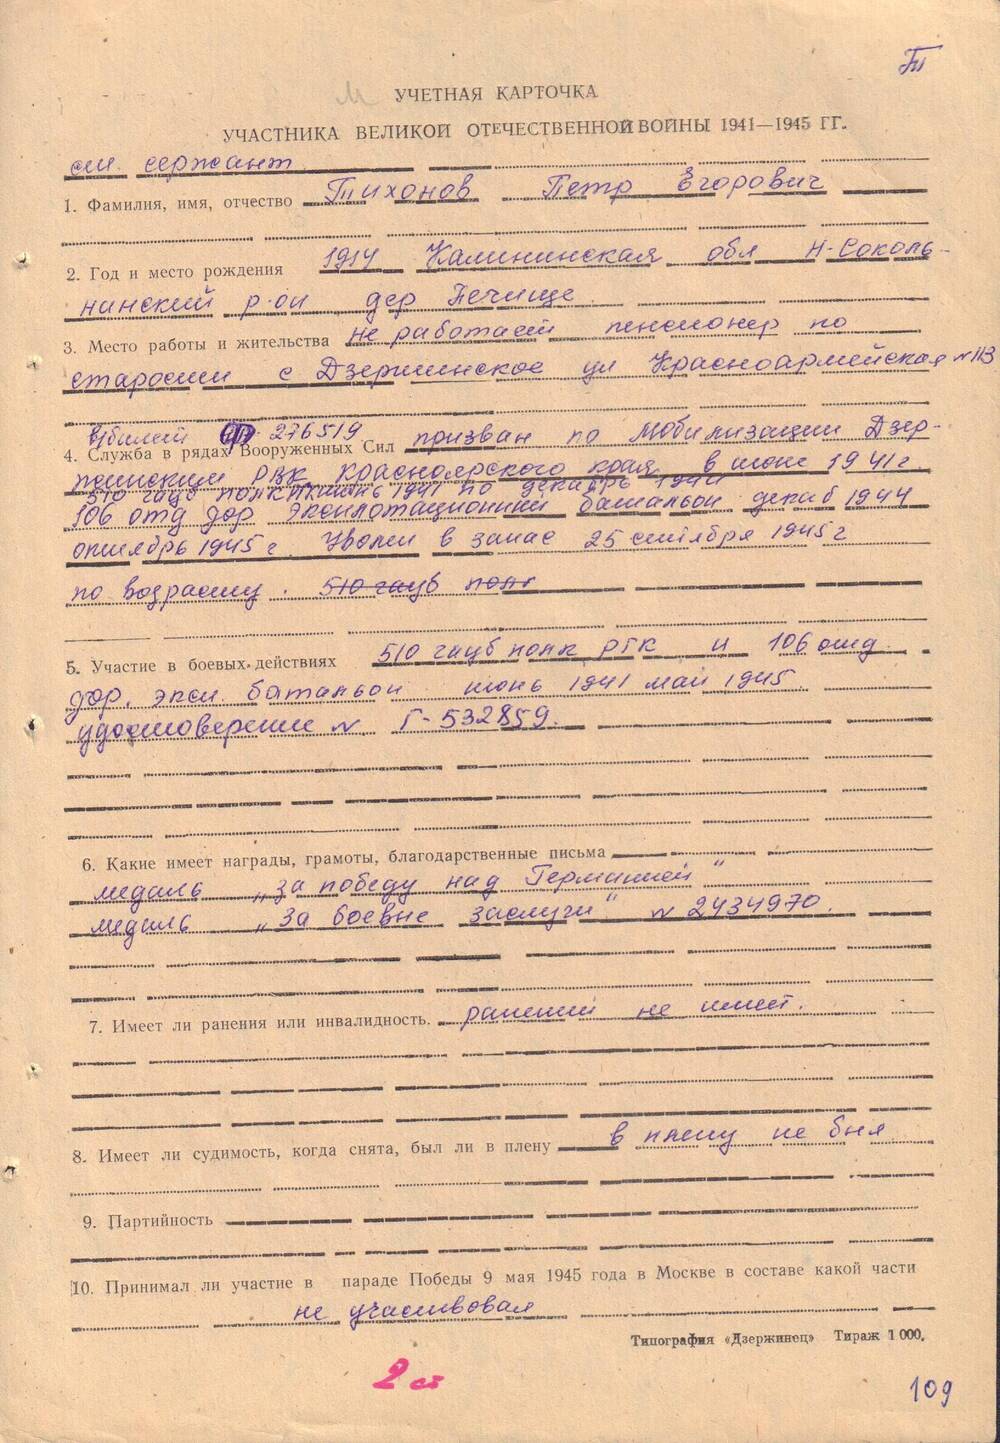 Тт
УЧЕТНАЯ КАРТОЧКА
УЧАСТНИКА ВЕЛИКОЙ ОТЕЧЕСТВЕННОЙ ВОЙНЫ 1941—1945 ГГ.
ст. сержант
1. Фамилия, имя, отчество Тихонов Петр Егорович
2. Год и место рождения 1914 Калининская обл Н-Соколь-
нинский р-он дер Печище
3. Место работы и жительства не работает пенсионер по
старости с Дзержинское ул Красноармейская №113
в/билет 276519
4. Служба в рядах Вооруженных Сил призван по мобилизации Дзер-
жинским РВК Красноярского края в июне 1941 г.
510 гауб полк июнь 1941 по декабрь 1944
106 отд дор эксплотационний батальон декаб 1944
октябрь 1945 г. Уволен в запас 25 сентября 1945 г
по возрасту. 510 гауб полк
5. Участие в боевых действиях 510 гауб полк РГК и 106 отд.
дор. эксп. батальон июнь 1941 май 1945
удостоверение № Г-532859.
6. Какие имеет награды, грамоты, благодарственные письма
медаль „за победу над Германией"
медаль „За боевые заслуги" № 2434970.
7. Имеет ли ранения или инвалидность. ранений не имеет.
8. Имеет ли судимость, когда снята, был ли в плену в плену не был
9. Партийность
10. Принимал ли участие в параде Победы 9 мая 1945 года в Москве в составе какой части
не участвовал
Типография «Дзержинец» Тираж 1 000.
2 ст
109